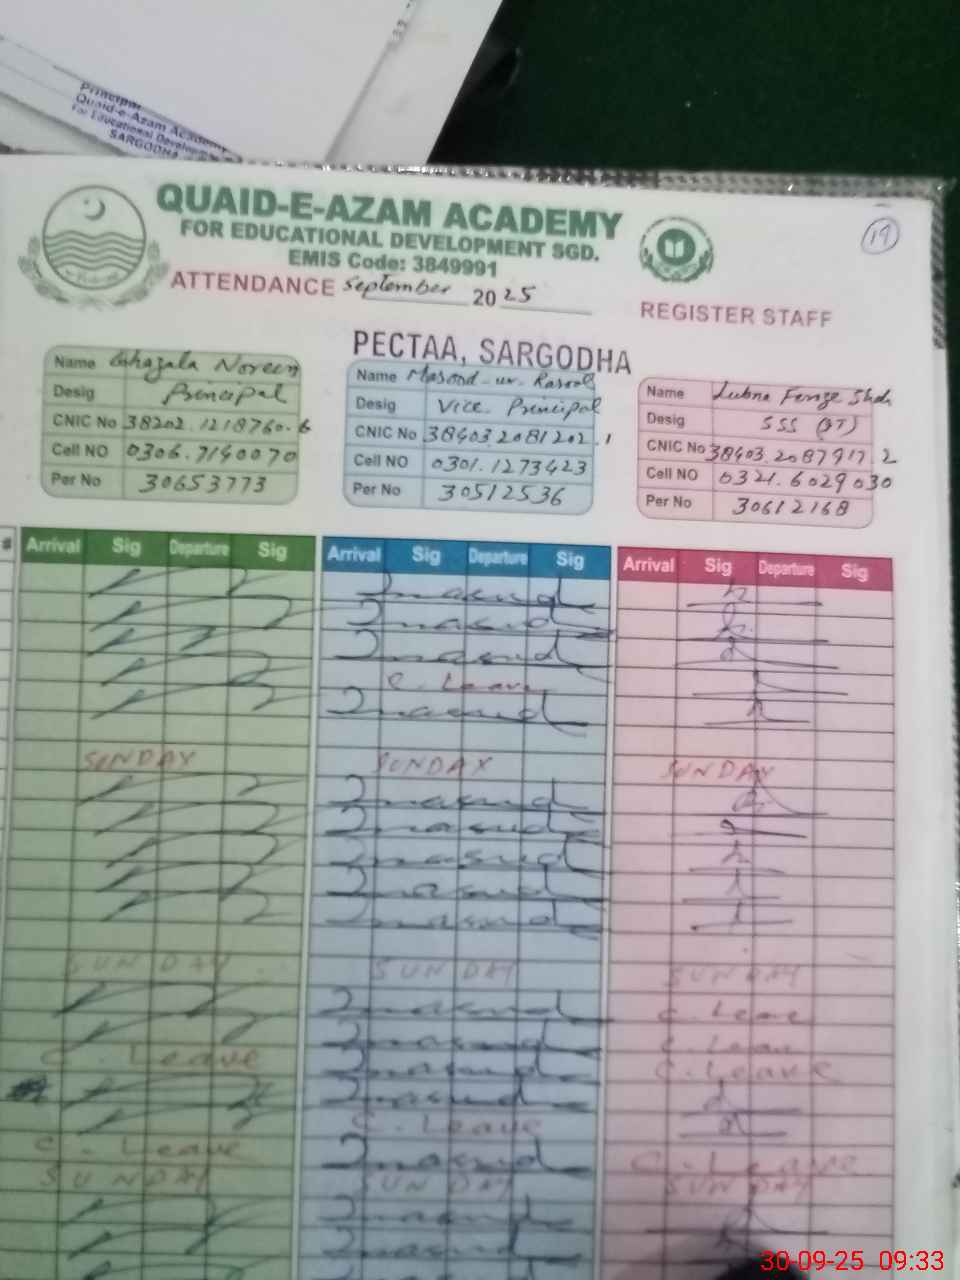 Principal
Quaid-e-Azam Academy
For Educational Development
SARGODHA
QUAID-E-AZAM ACADEMY
FOR EDUCATIONAL DEVELOPMENT SGD.
EMIS Code: 3849991
19
ATTENDANCE September 2025
REGISTER STAFF
PECTAA, SARGODHA
Name Ghazala Noreen
Desig Principal
CNIC No 38202.1218760.6
Cell NO 0306.7190070
Per No 30653773
Name Masood-ur-Rasool
Desig Vice Principal
CNIC No 384032081202.1
Cell NO 0301.1273423
Per No 30512536
Name Lubna
Desig SSS
CNIC No 38403.2087917.2
Cell NO 0321.6029030
Per No 30612168
# Arrival Sig Departure Sig Arrival Sig Departure Sig Arrival Sig Departure Sig
C. Leave
SUNDAY SUNDAY SUNDAY
SUNDAY SUNDAY SUNDAY
C. Leave
C. Leave
C. Leave C. Leave
C. Leave
C. Leave C. Leave
SUNDAY SUNDAY SUNDAY
30-09-25 09:33